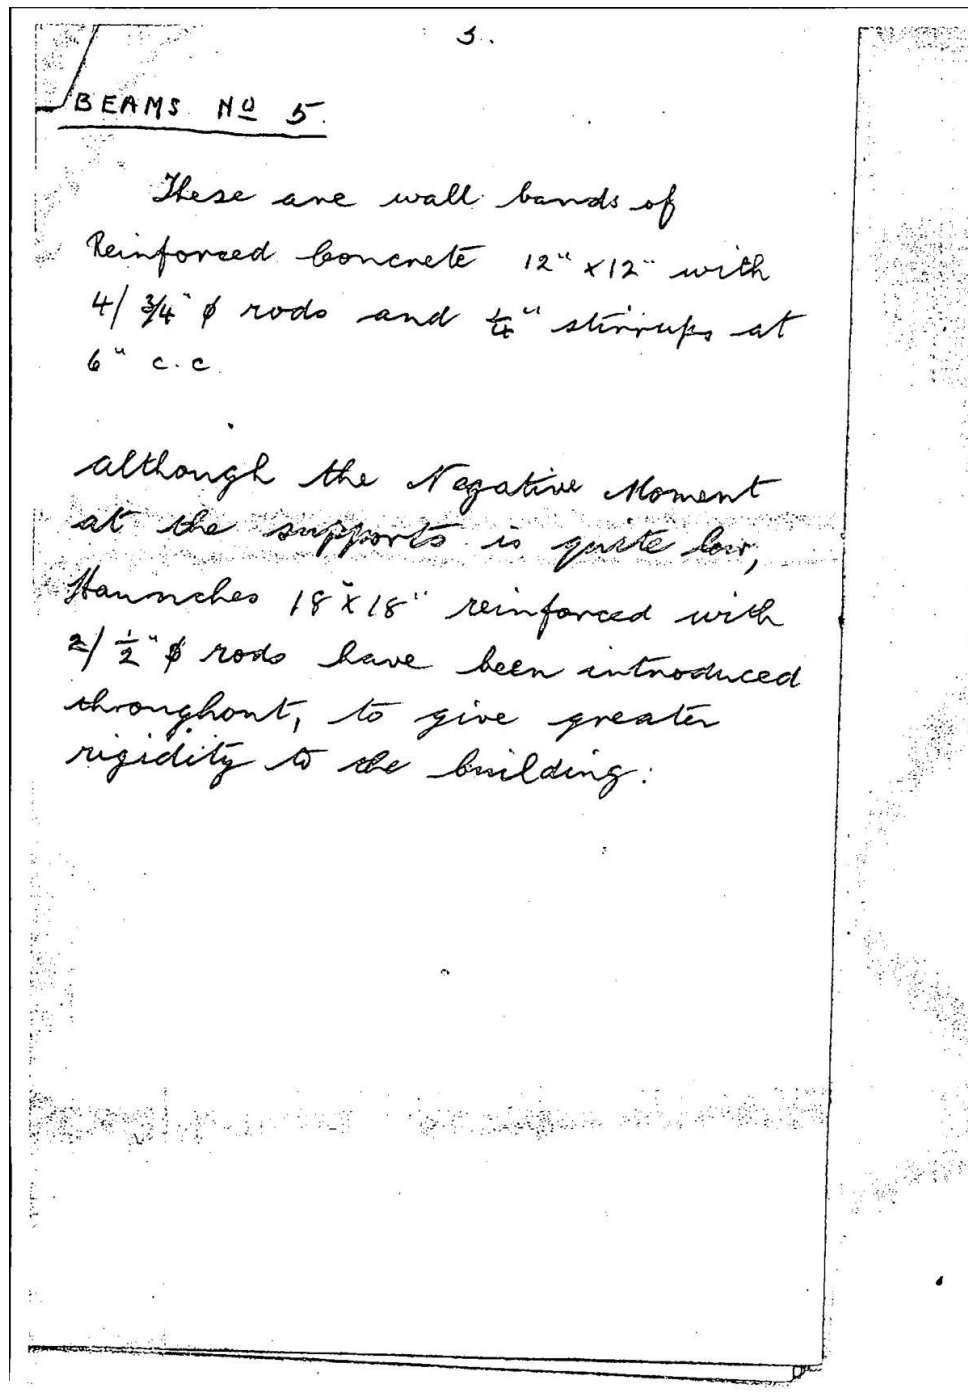 3.
BEAMS Nº 5.
These are wall bands of
Reinforced Concrete 12" x 12" with
4/ 3/4" ϕ rods and 1/4" stirrups at
6" c.c.
Although the Negative Moment
at the supports is quite low,
Haunches 18" x 18" reinforced with
2/ 1/2" ϕ rods have been introduced
throughout, to give greater
rigidity to the building: